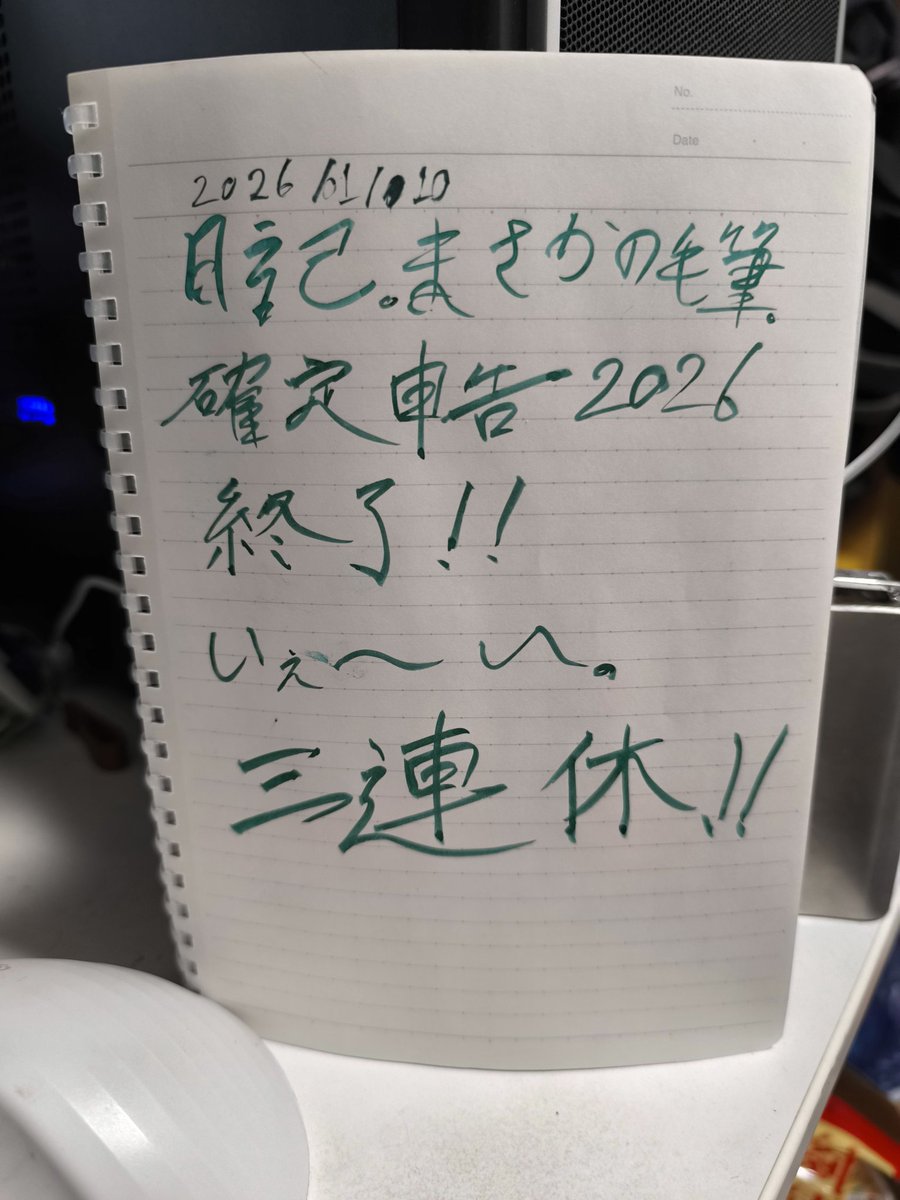 No.
Date
2026/01/10
日記。まさかの毛筆。
確定申告2026
終了!!
いぇ～い。
三連休!!